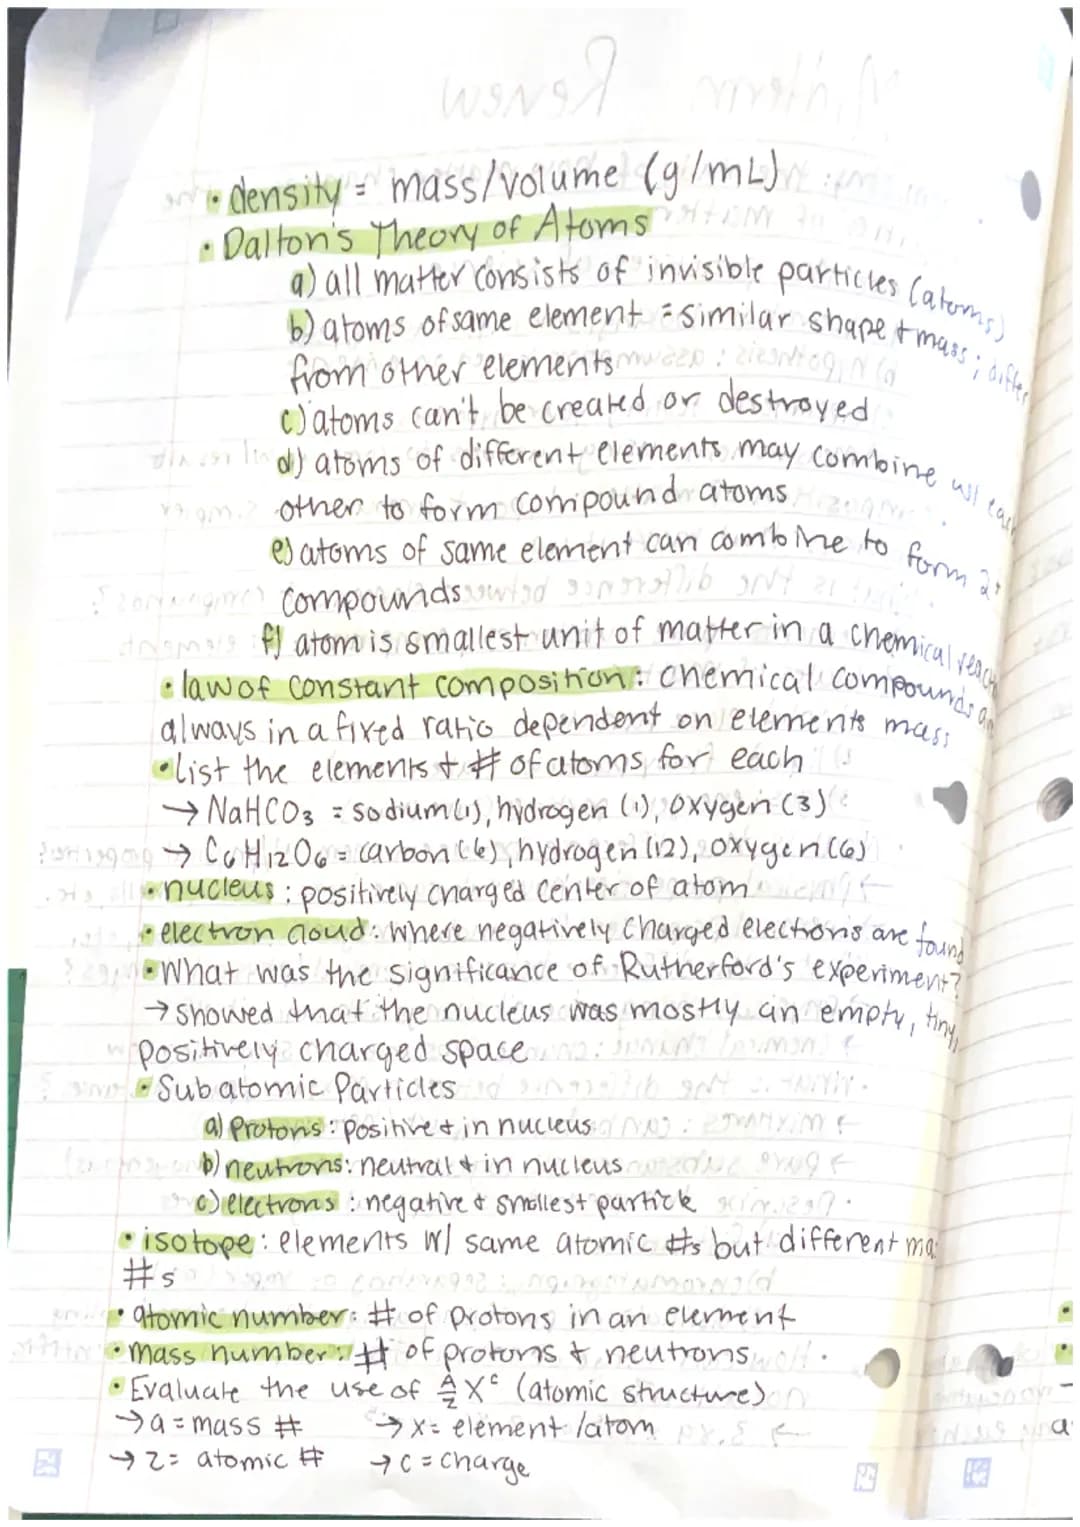 • density = mass/volume (g/mL)
• Dalton's Theory of Atoms
a) all matter consists of invisible particles (atoms)
b) atoms of same element = similar shape + mass; differ
from other elements
c) atoms can't be created or destroyed
d) atoms of different elements may combine w/ each
other to form compound atoms
e) atoms of same element can combine to form 2+
compounds
f) atom is smallest unit of matter in a chemical react
• law of constant composition: chemical compounds a
always in a fixed ratio dependent on elements mass
• List the elements + # of atoms for each
→ NaHCO3 = sodium(1), hydrogen (1), oxygen (3)
→ C6H12O6 = carbon (6), hydrogen (12), oxygen (6)
• nucleus: positively charged center of atom
• electron cloud: where negatively charged electrons are found
• What was the significance of Rutherford's experiment?
→ Showed that the nucleus was mostly an empty, tiny,
positively charged space
• Subatomic Particles
a) Protons: positive + in nucleus
b) neutrons: neutral + in nucleus
c) electrons: negative + smallest particle
• isotope: elements w/ same atomic #s but different ma
#s
• atomic number: # of protons in an element
• mass number: # of protons + neutrons
• Evaluate the use of A/Z X^c (atomic structure)
→ a = mass # → x = element/atom
→ z = atomic # → c = charge